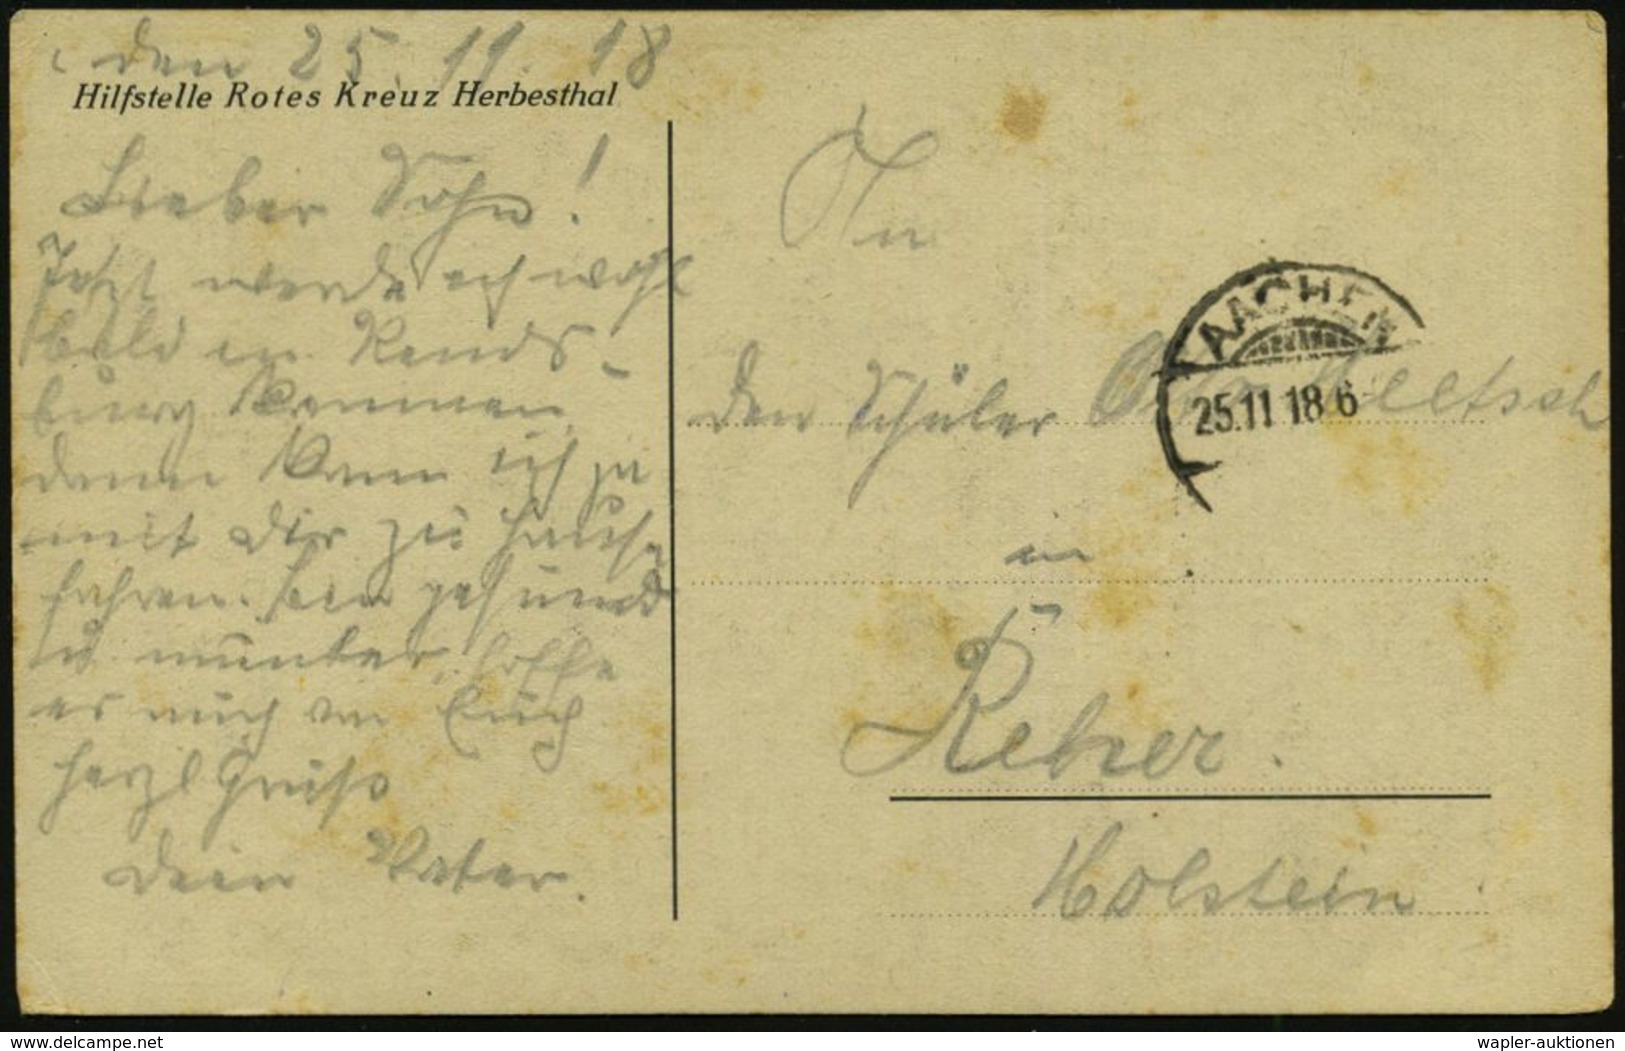 den 25.11.18
Hilfstelle Rotes Kreuz Herbesthal
Lieber Sohn!
Jetzt werde ich wohl
bald in Rends-
burg kommen
dann kann ich ja
mit dir zu Hause
fahren. bin gesund
u munter, hoffe
es auch von Euch
herzl Gruß
Dein Vater.
An
den Schüler
in
Reher.
Holstein
AACHEN
25.11 18 6-
delcampe.net
wapler-auktionen